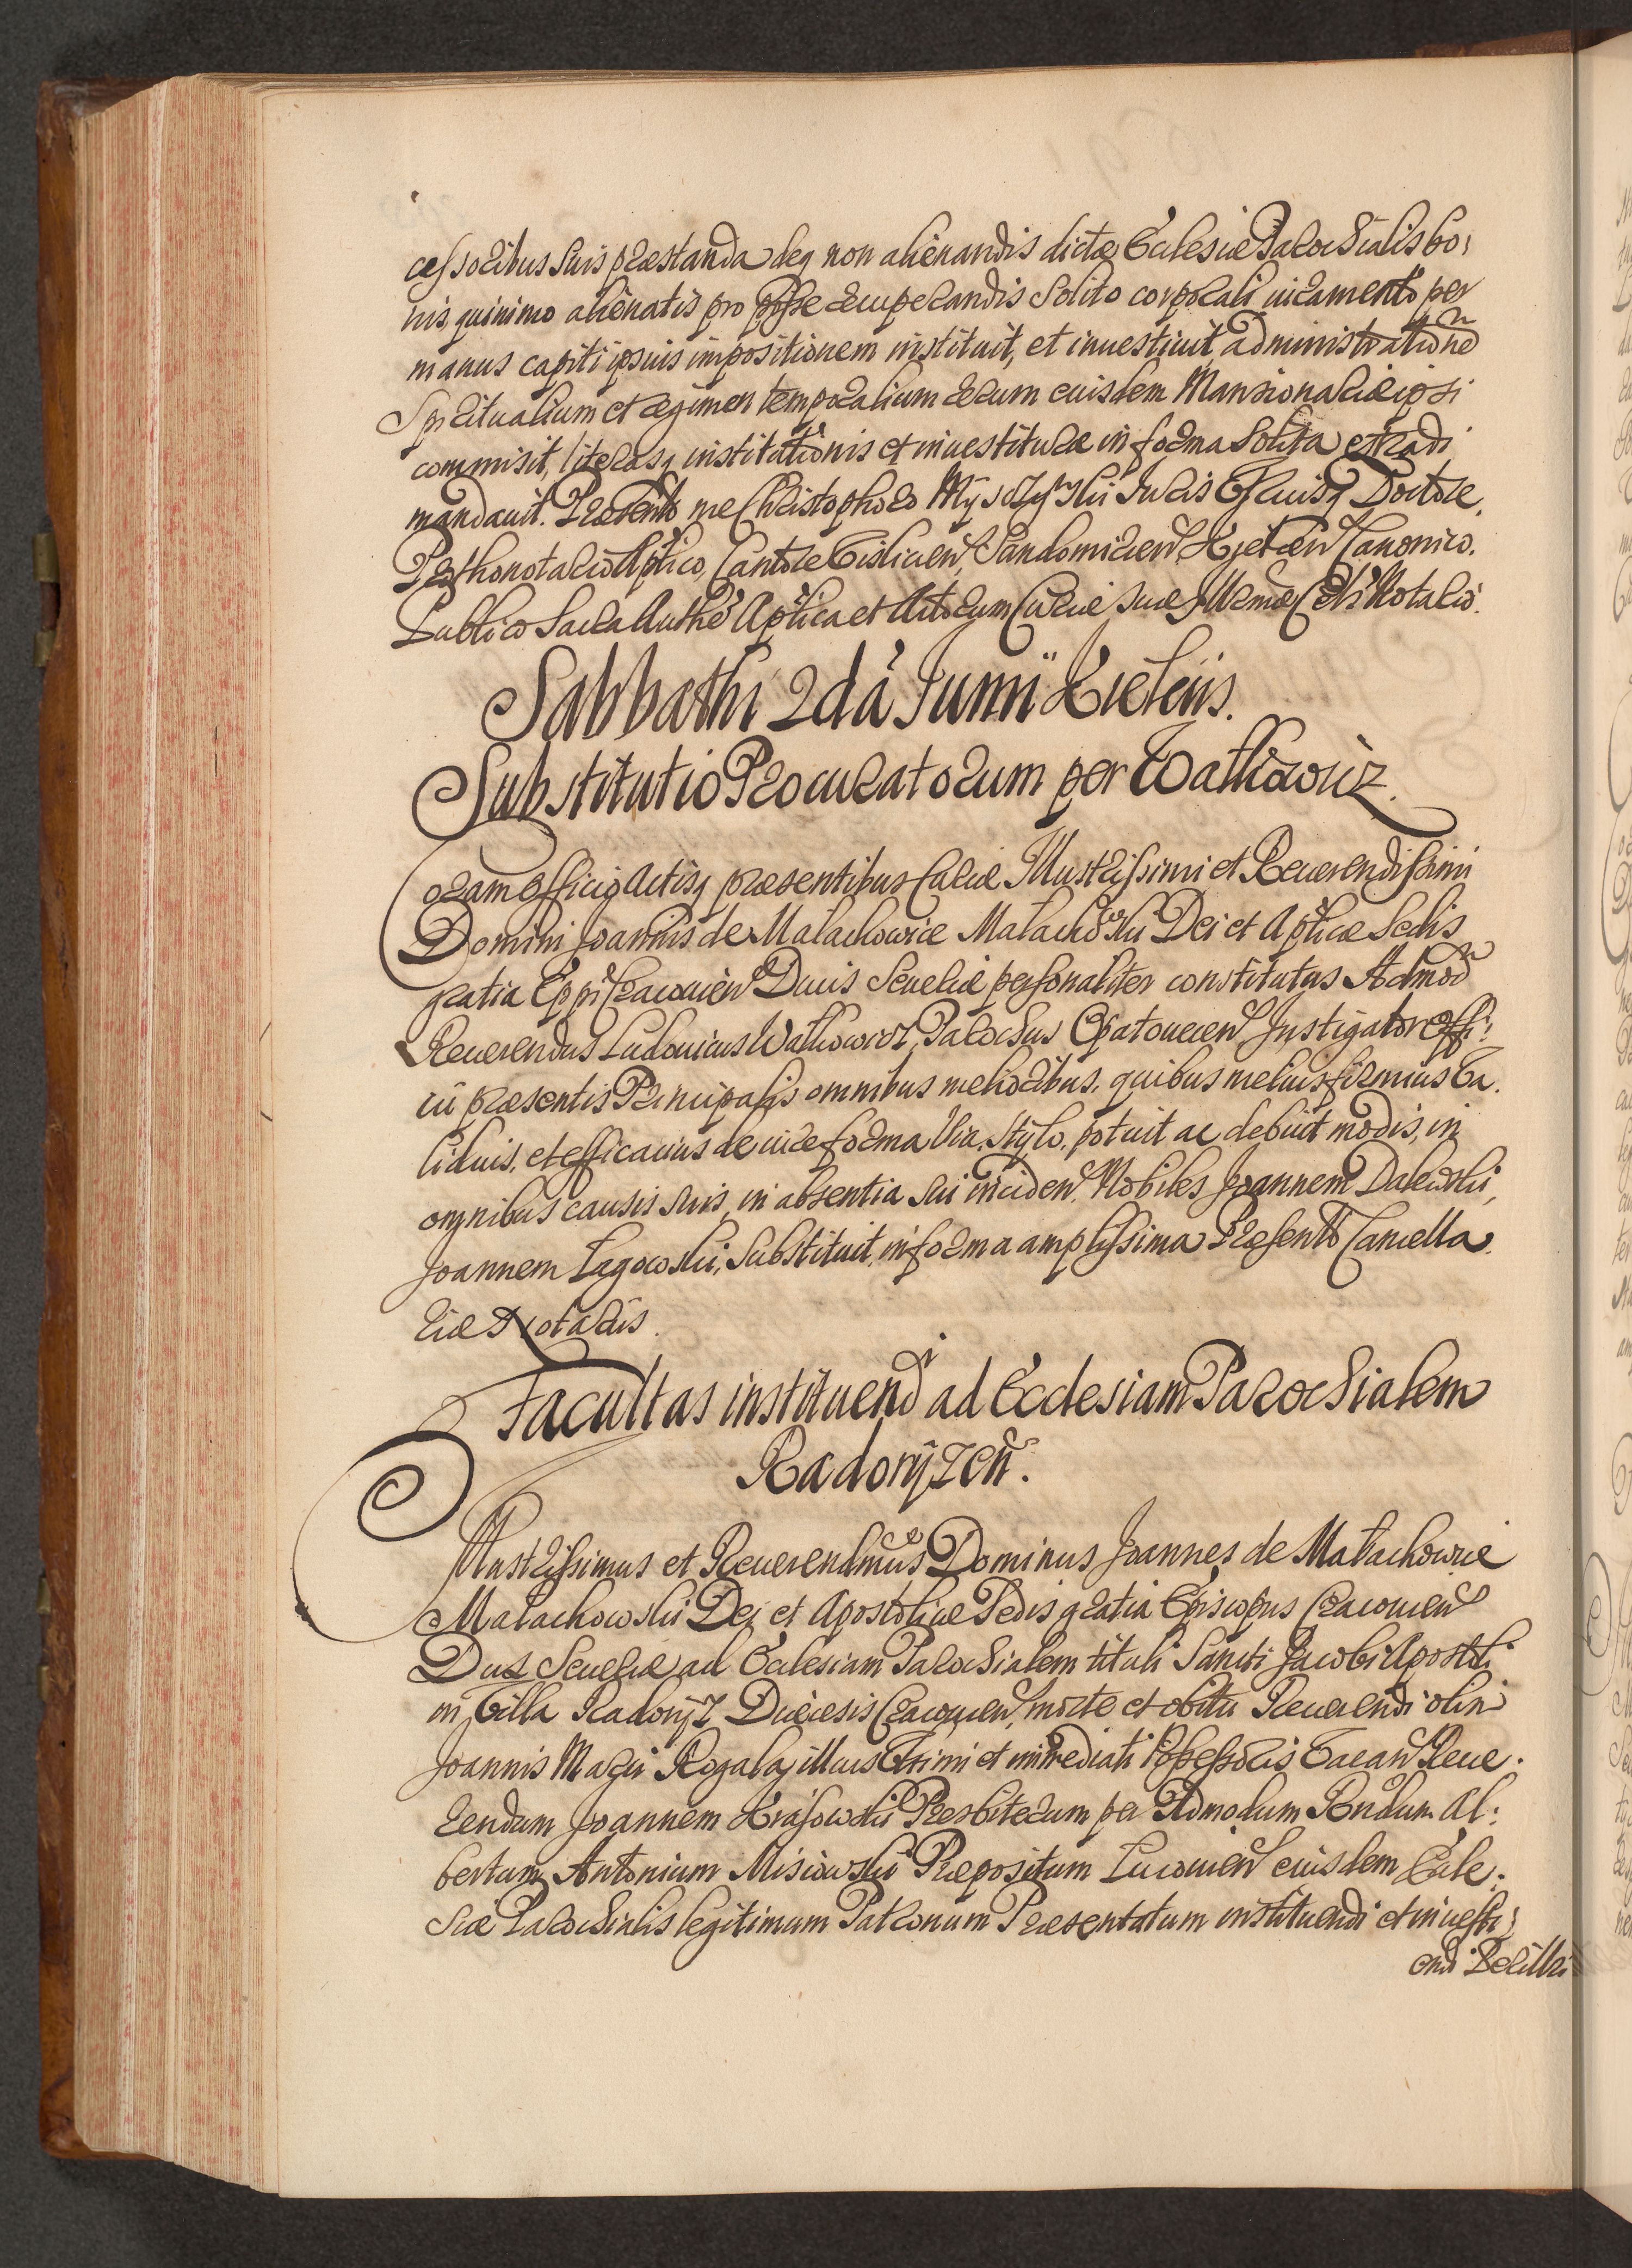 cessoribus suis præstanda deq non alienandis dictæ Ecclesiæ Parochialis bo:
nis, quinimo alienatis pro posse recuperandis solito corporali iuramento per
manus capiti ipsius impositionem instituit, et inuestiuit administratione
Spiritualium et regimen temporalium rerum eiusdem Mansionariæ ipsi
commisit, literasq institutionis et inuestituræ in forma solita extradi
mandauit. Præsente me Christophoro Juris Utriusq Doctore,
Prothonotario Aplico, Cantore Vislicien, Sandomirien Kielcen Canonico.
Publico Sacra Authe Aplica et Actorum Curiæ suæ Illrmæ Notario.
Sabbathi 2da Junii Kielciis.
Substitutio Procuratorum per Wathowicz.
Coram Officio Actisq præsentibus Curiæ Illustrissimi et Reuerendissimi
Domini Joannis de Małachowice Małachowski Dei et Aplicæ Sedis
gratia Eppi Cracouien Ducis Seueriæ personaliter constitutus Admod
Reuerendus Ludouicus Wathowicz, Parochus Opatouiecen Instigator Offi:
cii præsentis Principalis omnibus melioribus, quibus melius firmius Va
lidius, et efficacius de iure forma Via, Stylo, potuit ac debuit modis, in
omnibus causis suis, in absentia sui inciden Nobiles Joannem Dalewski,
Joannem Łagowski, substituit, in forma amplissima Præsente Cancella
riæ Notariis.
Facultas instituend ad Ecclesiam Parochialem
Radoryzen.
Illustrissimus et Reuerendmus Dominus Joannes de Małachowice
Małachowski Dei et Apostolicæ Sedis gratia Episcopus Cracouien
Dux Seueriæ ad Ecclesiam Parochialem tituli Sancti Jacobi Apostoli
in Villa Radoryz Diæcesis Cracouien, morte et obitu Reuerendi olim
Joannis Rogala illius Ultimi et immediati Possessoris Vacan Reue:
rendum Joannem Krasowski Presbiterum per Admodum Rndum Al:
bertum Antonium Misiowski Præpositum Lucouien eiusdem Eccle:
siæ Parochialis legitimum Patronum Præsentatum instituendi et inuesti:
endi